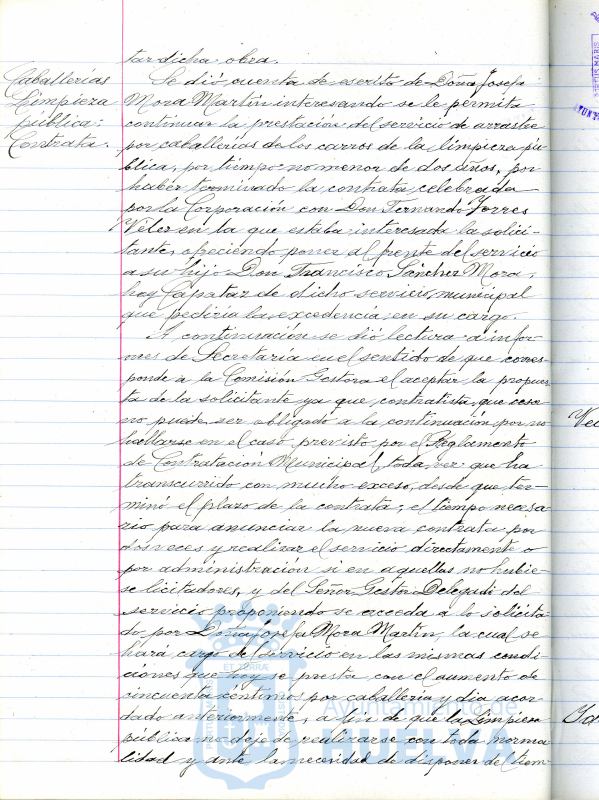 tar dicha obra.
Caballerías
Limpieza
pública:
Contrata.
Se dió cuenta de escrito de Doña Josefa
Mora Martín interesando se le permita
continuar la prestación del servicio de arrastre
por caballerías de los carros de la limpieza pú-
blica, por tiempo no menor de dos años, por
haber terminado la contrata celebrada
por la Corporación con Don Fernando Torres
Vélez en la que estaba interesada la solici-
tante, ofreciendo poner al frente del servicio
a su hijo Don Francisco Sánchez Mora,
hoy Capataz de dicho servicio municipal
que pediría la excedencia en su cargo.
A continuación se dió lectura a infor-
mes de Secretaría en el sentido de que corres-
ponde a la Comisión Gestora el aceptar la propues-
ta de la solicitante ya que, contratista que cesa
no puede ser obligado a la continuación por no
hallarse en el caso previsto por el Reglamento
de Contratación Municipal, toda vez que ha
transcurrido con mucho exceso, desde que ter-
minó el plazo de la contrata, el tiempo necesa-
rio para anunciar la nueva contrata por
dos veces y realizar el servicio directamente o
por administración si en aquellas no hubie-
se licitadores, y del Señor Gestor Delegado del
servicio proponiendo se acceda a lo solicita-
do por Doña Josefa Mora Martín, la cual se
hará cargo del servicio en las mismas condi-
ciones que hoy se presta con el aumento de
cincuenta céntimos por caballería y día acor-
dado anteriormente, a fin de que la Limpieza
pública no deje de realizarse con toda norma-
lidad y ante la necesidad de disponer del tiem-
Ayuntamiento de
HUELVA